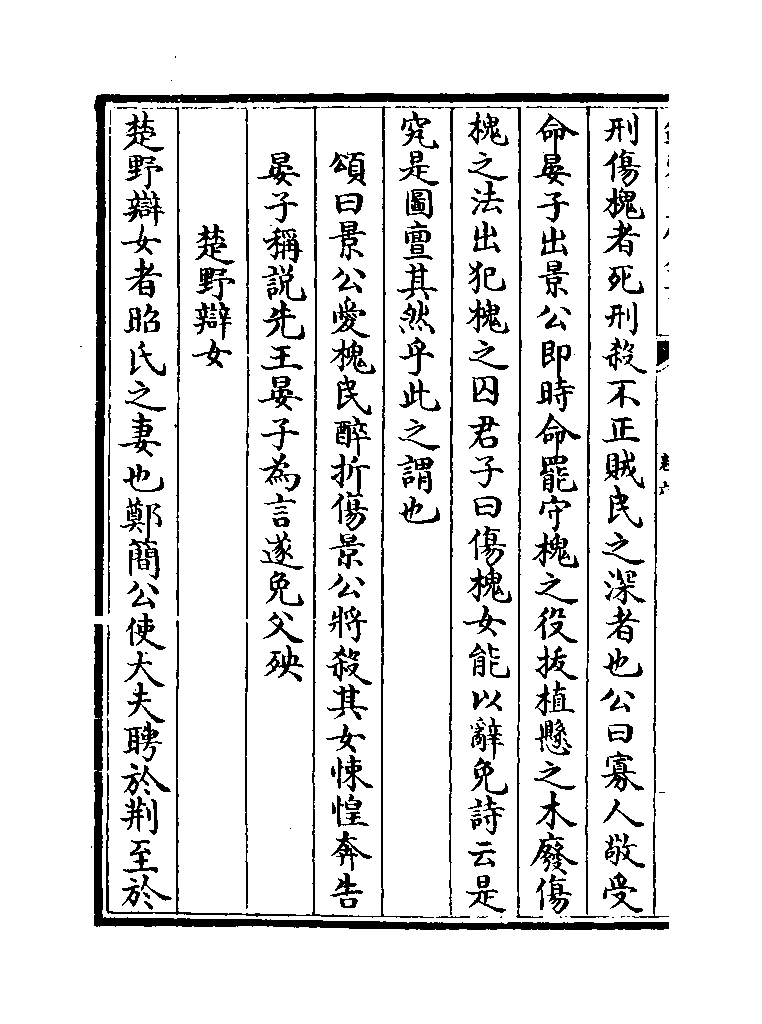 刑傷槐者死刑殺不正賊民之深者也公曰寡人敬受
命晏子出景公即時命罷守槐之役拔植懸之木廢傷
槐之法出犯槐之囚君子曰傷槐女能以辭免詩云是
究是圖亶其然乎此之謂也
頌曰景公愛槐民醉折傷景公將殺其女悚惶奔告
晏子稱說先王晏子為言遂免父殃
楚野辯女
楚野辯女者昭氏之妻也鄭簡公使大夫聘於荆至於